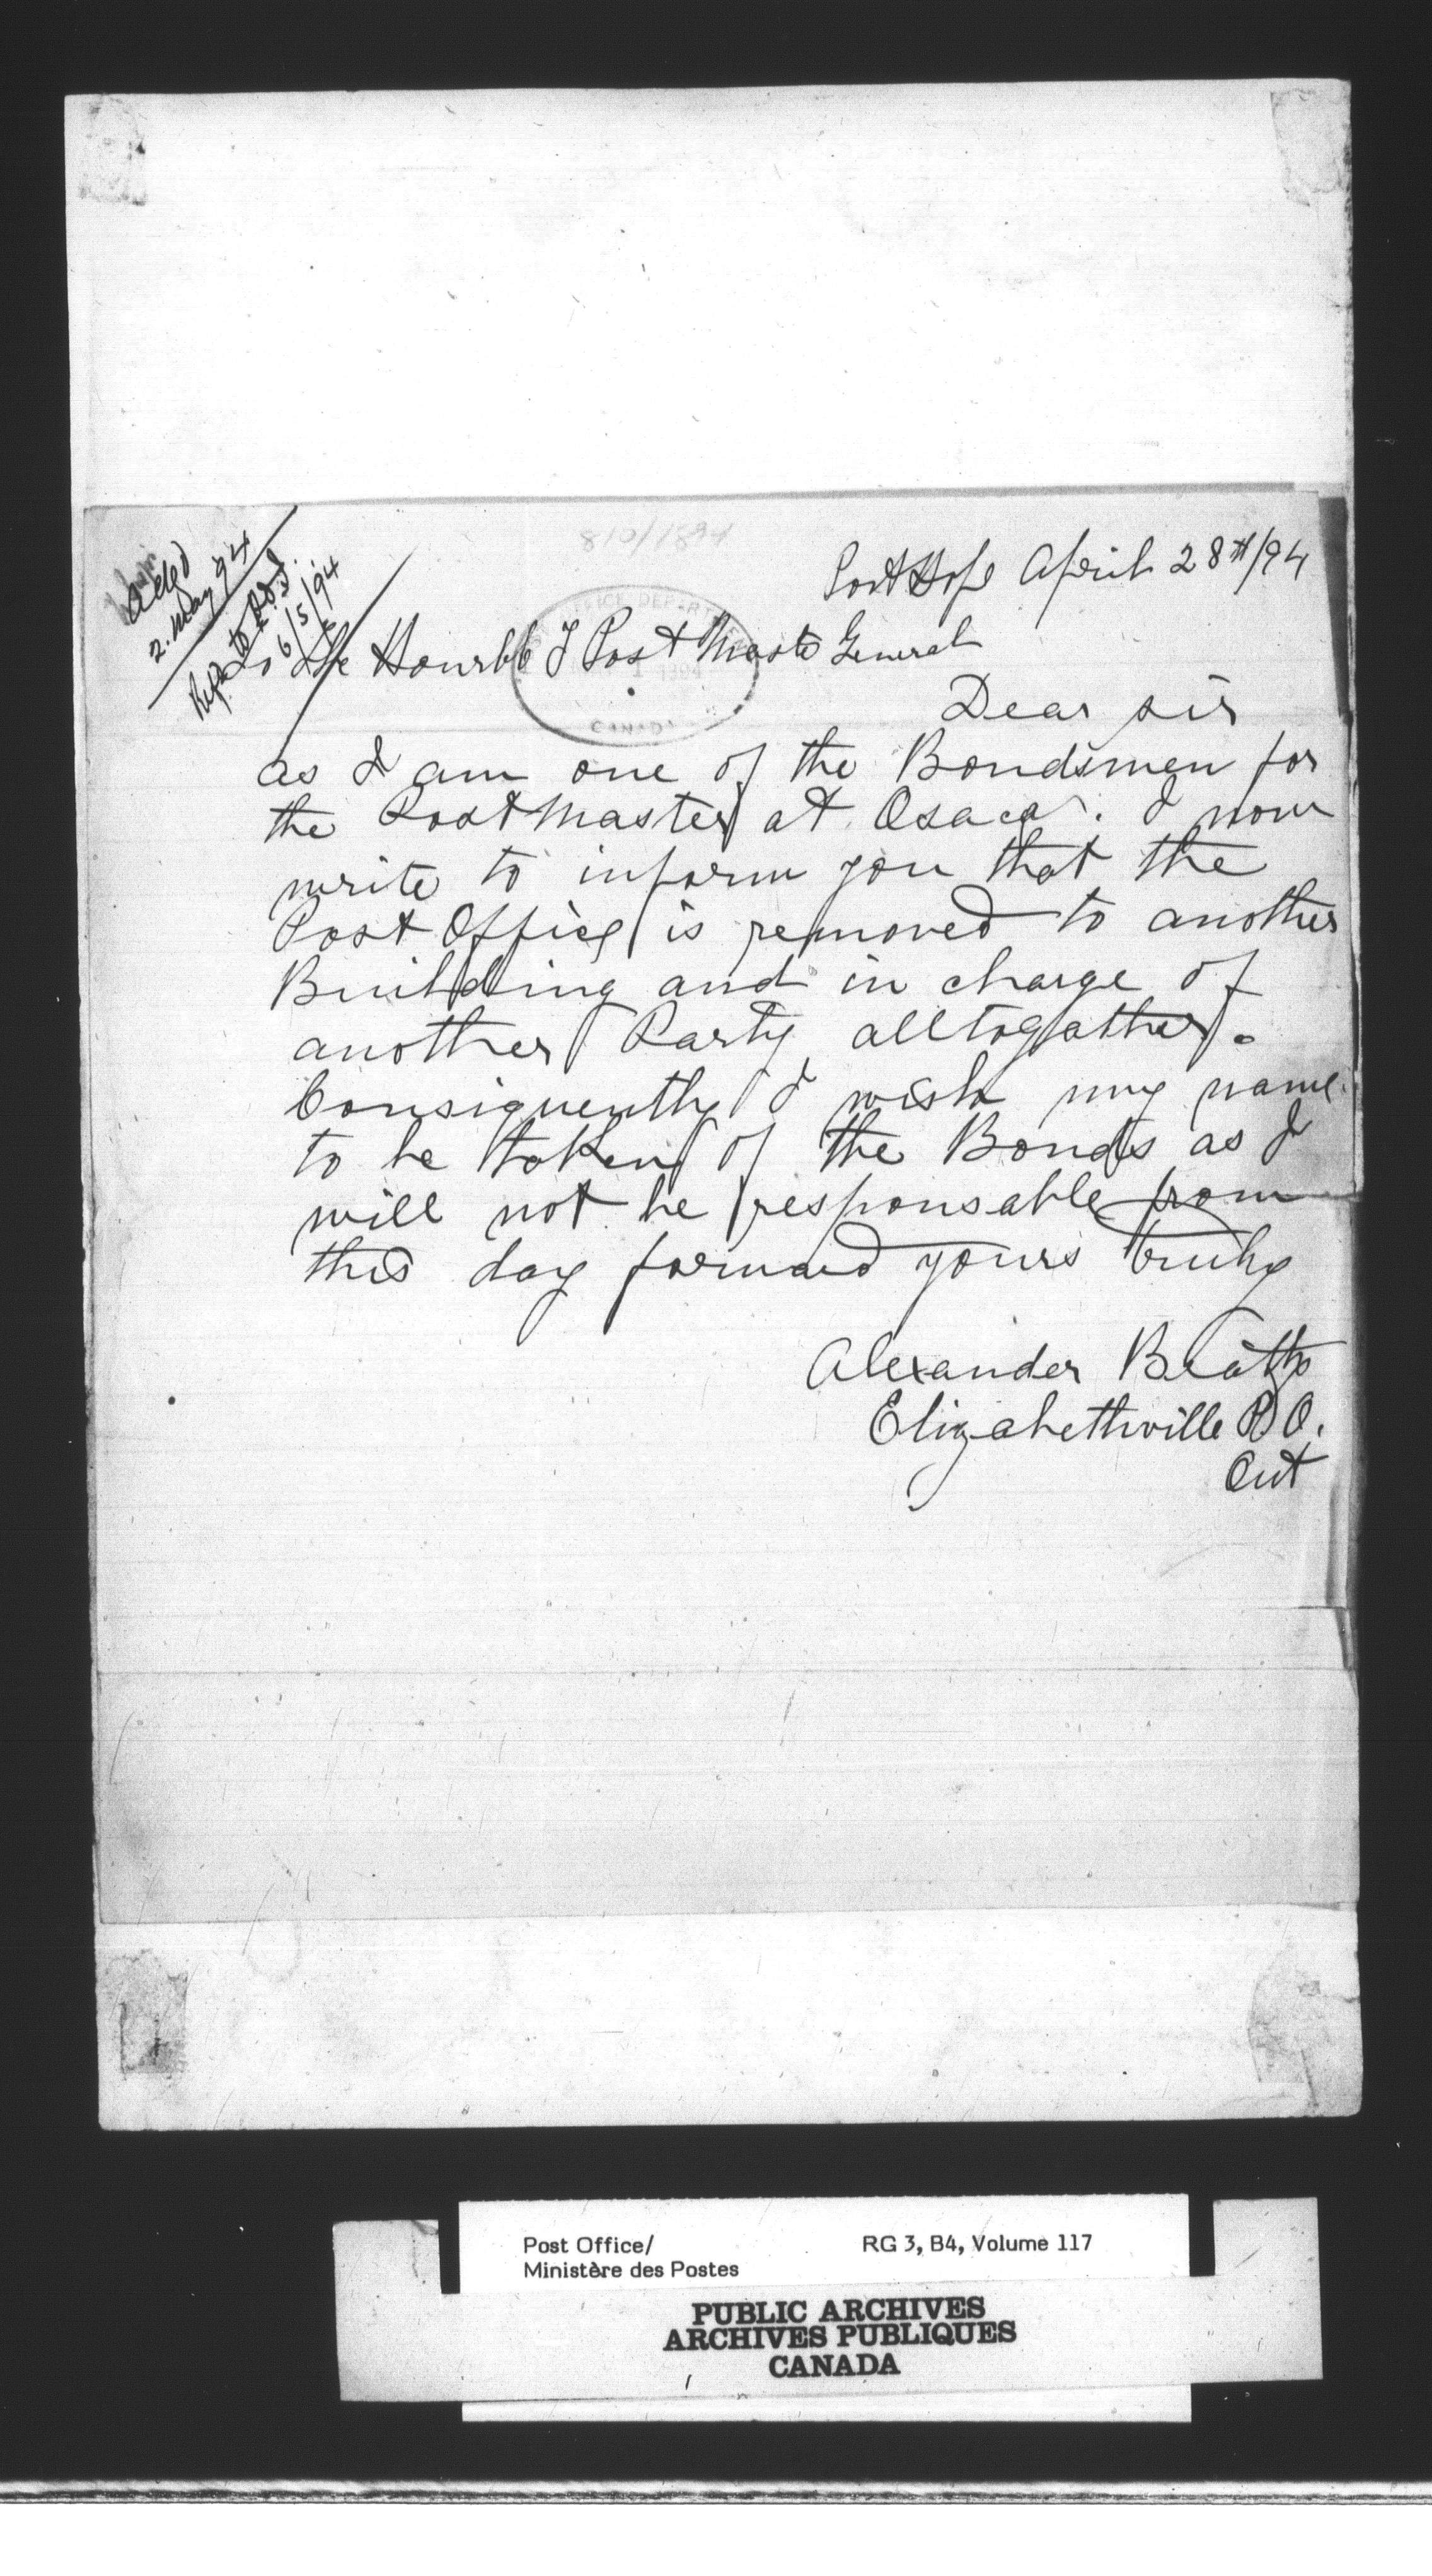 810/1894
Port Hope April 28th/94
Acked
2. May 94
to P.O.I.
6/5/94
To the Hourbl Post Master General
POST OFFICE DEPARTMENT
1 1894
CANADA
Dear sir
as I am one of the Bondsmen for
the Post Master at Osaca. I now
write to inform you that the
Post Office is removed to another
Building and in charge of
another Party alltogather.
Consiquently I wish my name
to be taken of the Bonds as I
will not be responsable from
this day forward yours truly
Alexander Beatty
Elizabethville P.O.
Ont
Post Office/ RG 3, B4, Volume 117
Ministère des Postes
PUBLIC ARCHIVES
ARCHIVES PUBLIQUES
CANADA